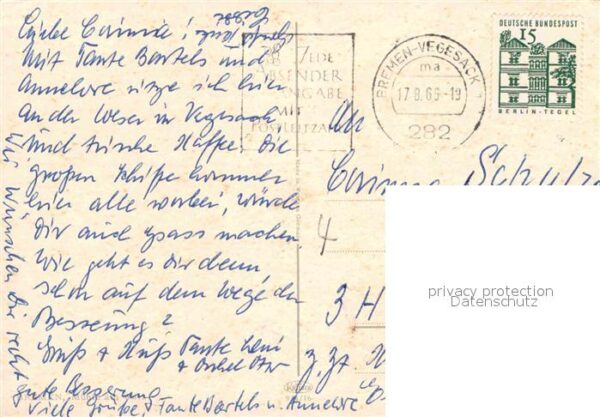 Liebe Corinna!
Mit Tante Bartels und
Annelore sitze ich hier
an der Weser in Vegesack
und trinke Kaffee. Die
großen Schiffe kommen
hier alle vorbei, würde
Dir auch spass machen
Wie geht es Dir denn,
schon auf dem Wege der
Besserung?
Gruß + Kuß Tante Leni
+ Onkel Otto
Wir wünschen Dir recht
gute Besserung
Viele Grüße Tante Bartels u. Annelore
JEDE
ABSENDER
ANGABE
MIT
POSTLEITZAHL
BREMEN-VEGESACK 1
ma
17.8.66-19
282
DEUTSCHE BUNDESPOST
15
BERLIN-TEGEL
An
Corinna Schulze
4
3 H
z. Zt.
privacy protection
Datenschutz